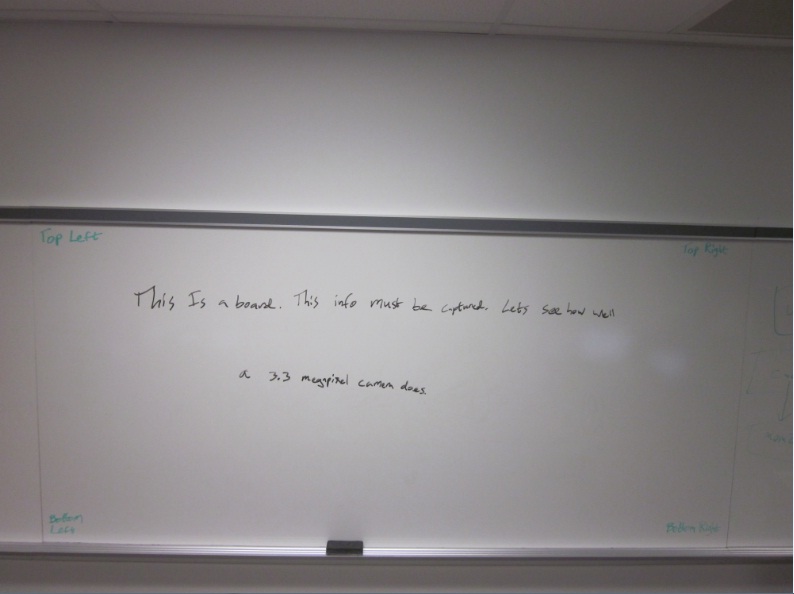 Top Left
Top Right
This Is a board. This info must be captured. Lets see how well
a 3.3 megapixel camera does.
Bottom
Left
Bottom Right